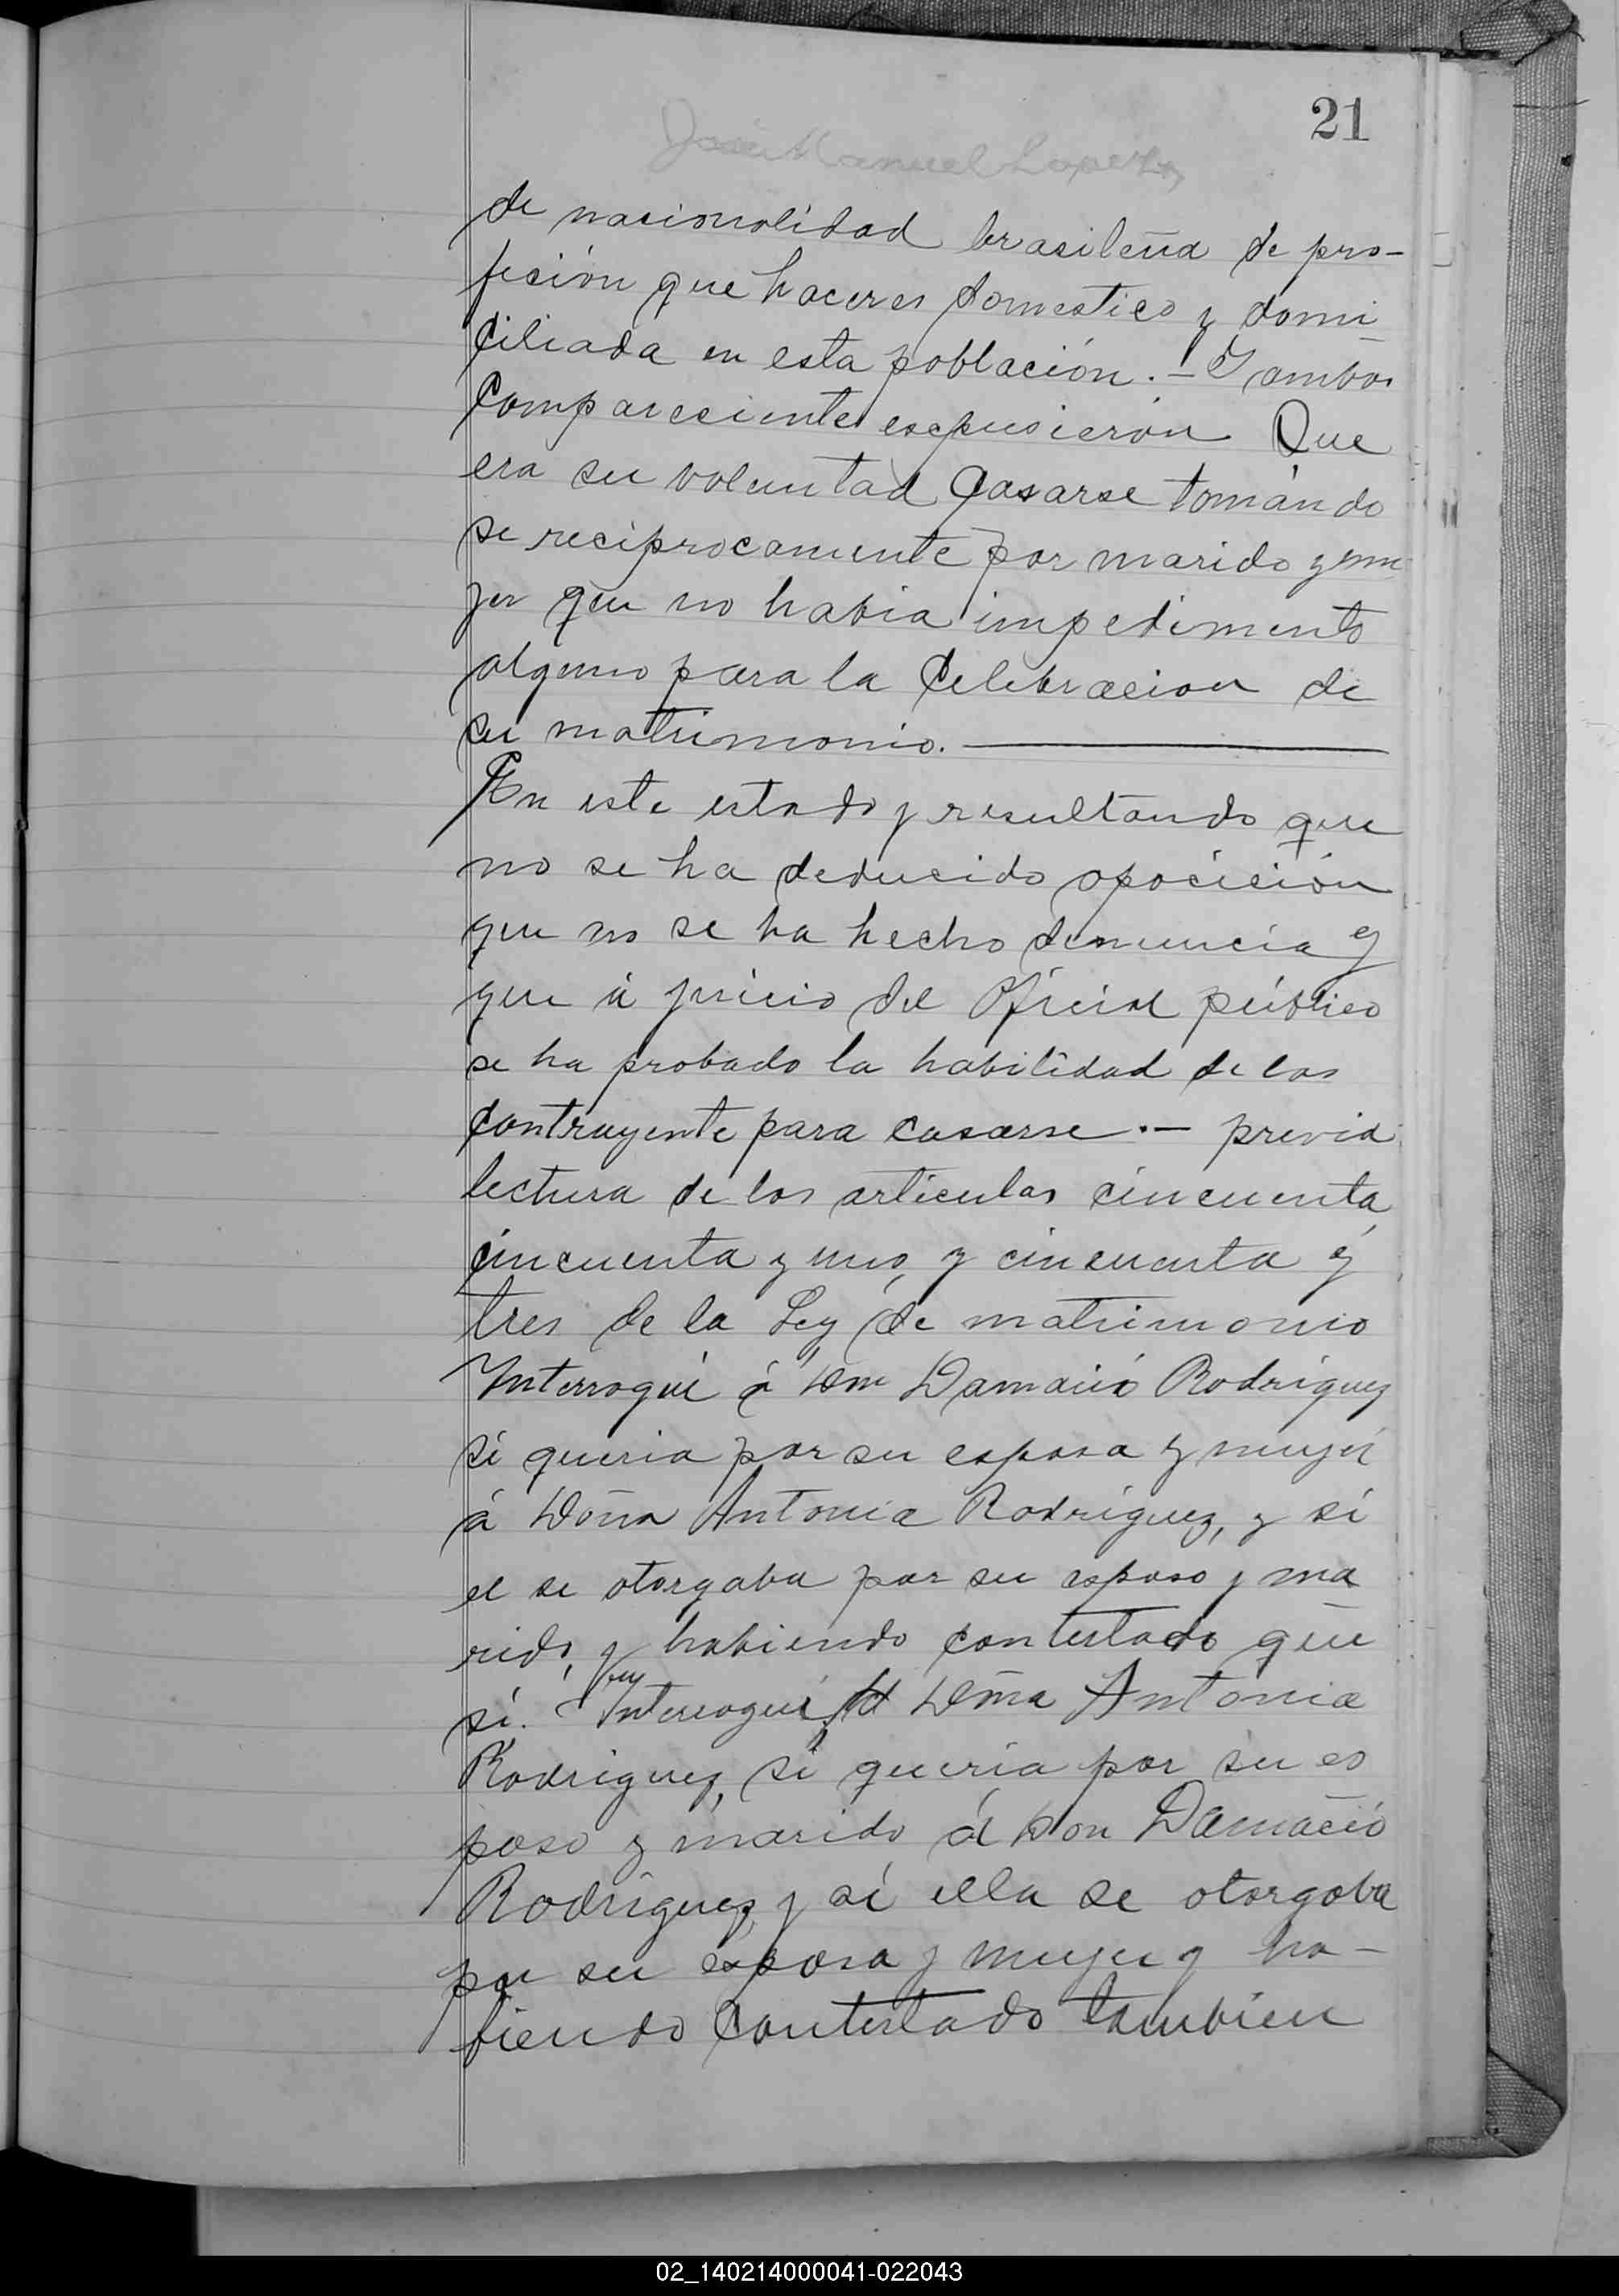 21
José Manuel Lopez
de nacionalidad brasileña de pro-
fesión que haceres domestico y domi
ciliada en esta población. - Y ambos
Compareciente esepusierón Que
era su voluntad Casarse tomándo
se reciprocamente por marido y mu
jer que no habia impedimento
alguno para la Celebracion de
su matrimonio.
En este estado y resultando que
no se ha deducido oposición
que no se ha hecho denuncia y
que á juicio del Oficial público
se ha probado la habilidad de los
contrayente para casarse .- previa
lectura de los articulos cincuenta,
cincuenta y uno, y cincuenta y
tres de la Ley de matrimonio
Interrogué á Don Damacio Rodriguez
si queria por su esposa y mujer
á Doña Antonia Rodriguez, y si
el se otorgaba por su esposo y ma
rido, y habiendo contestado que
sí. Interrogué á Doña Antonia
Rodriguez, si queria por su es
poso y marido á Don Damacio
Rodriguez, y si ella se otorgaba
por su esposa y mujer y ha-
biendo Contestado tambien
02_140214000041-022043